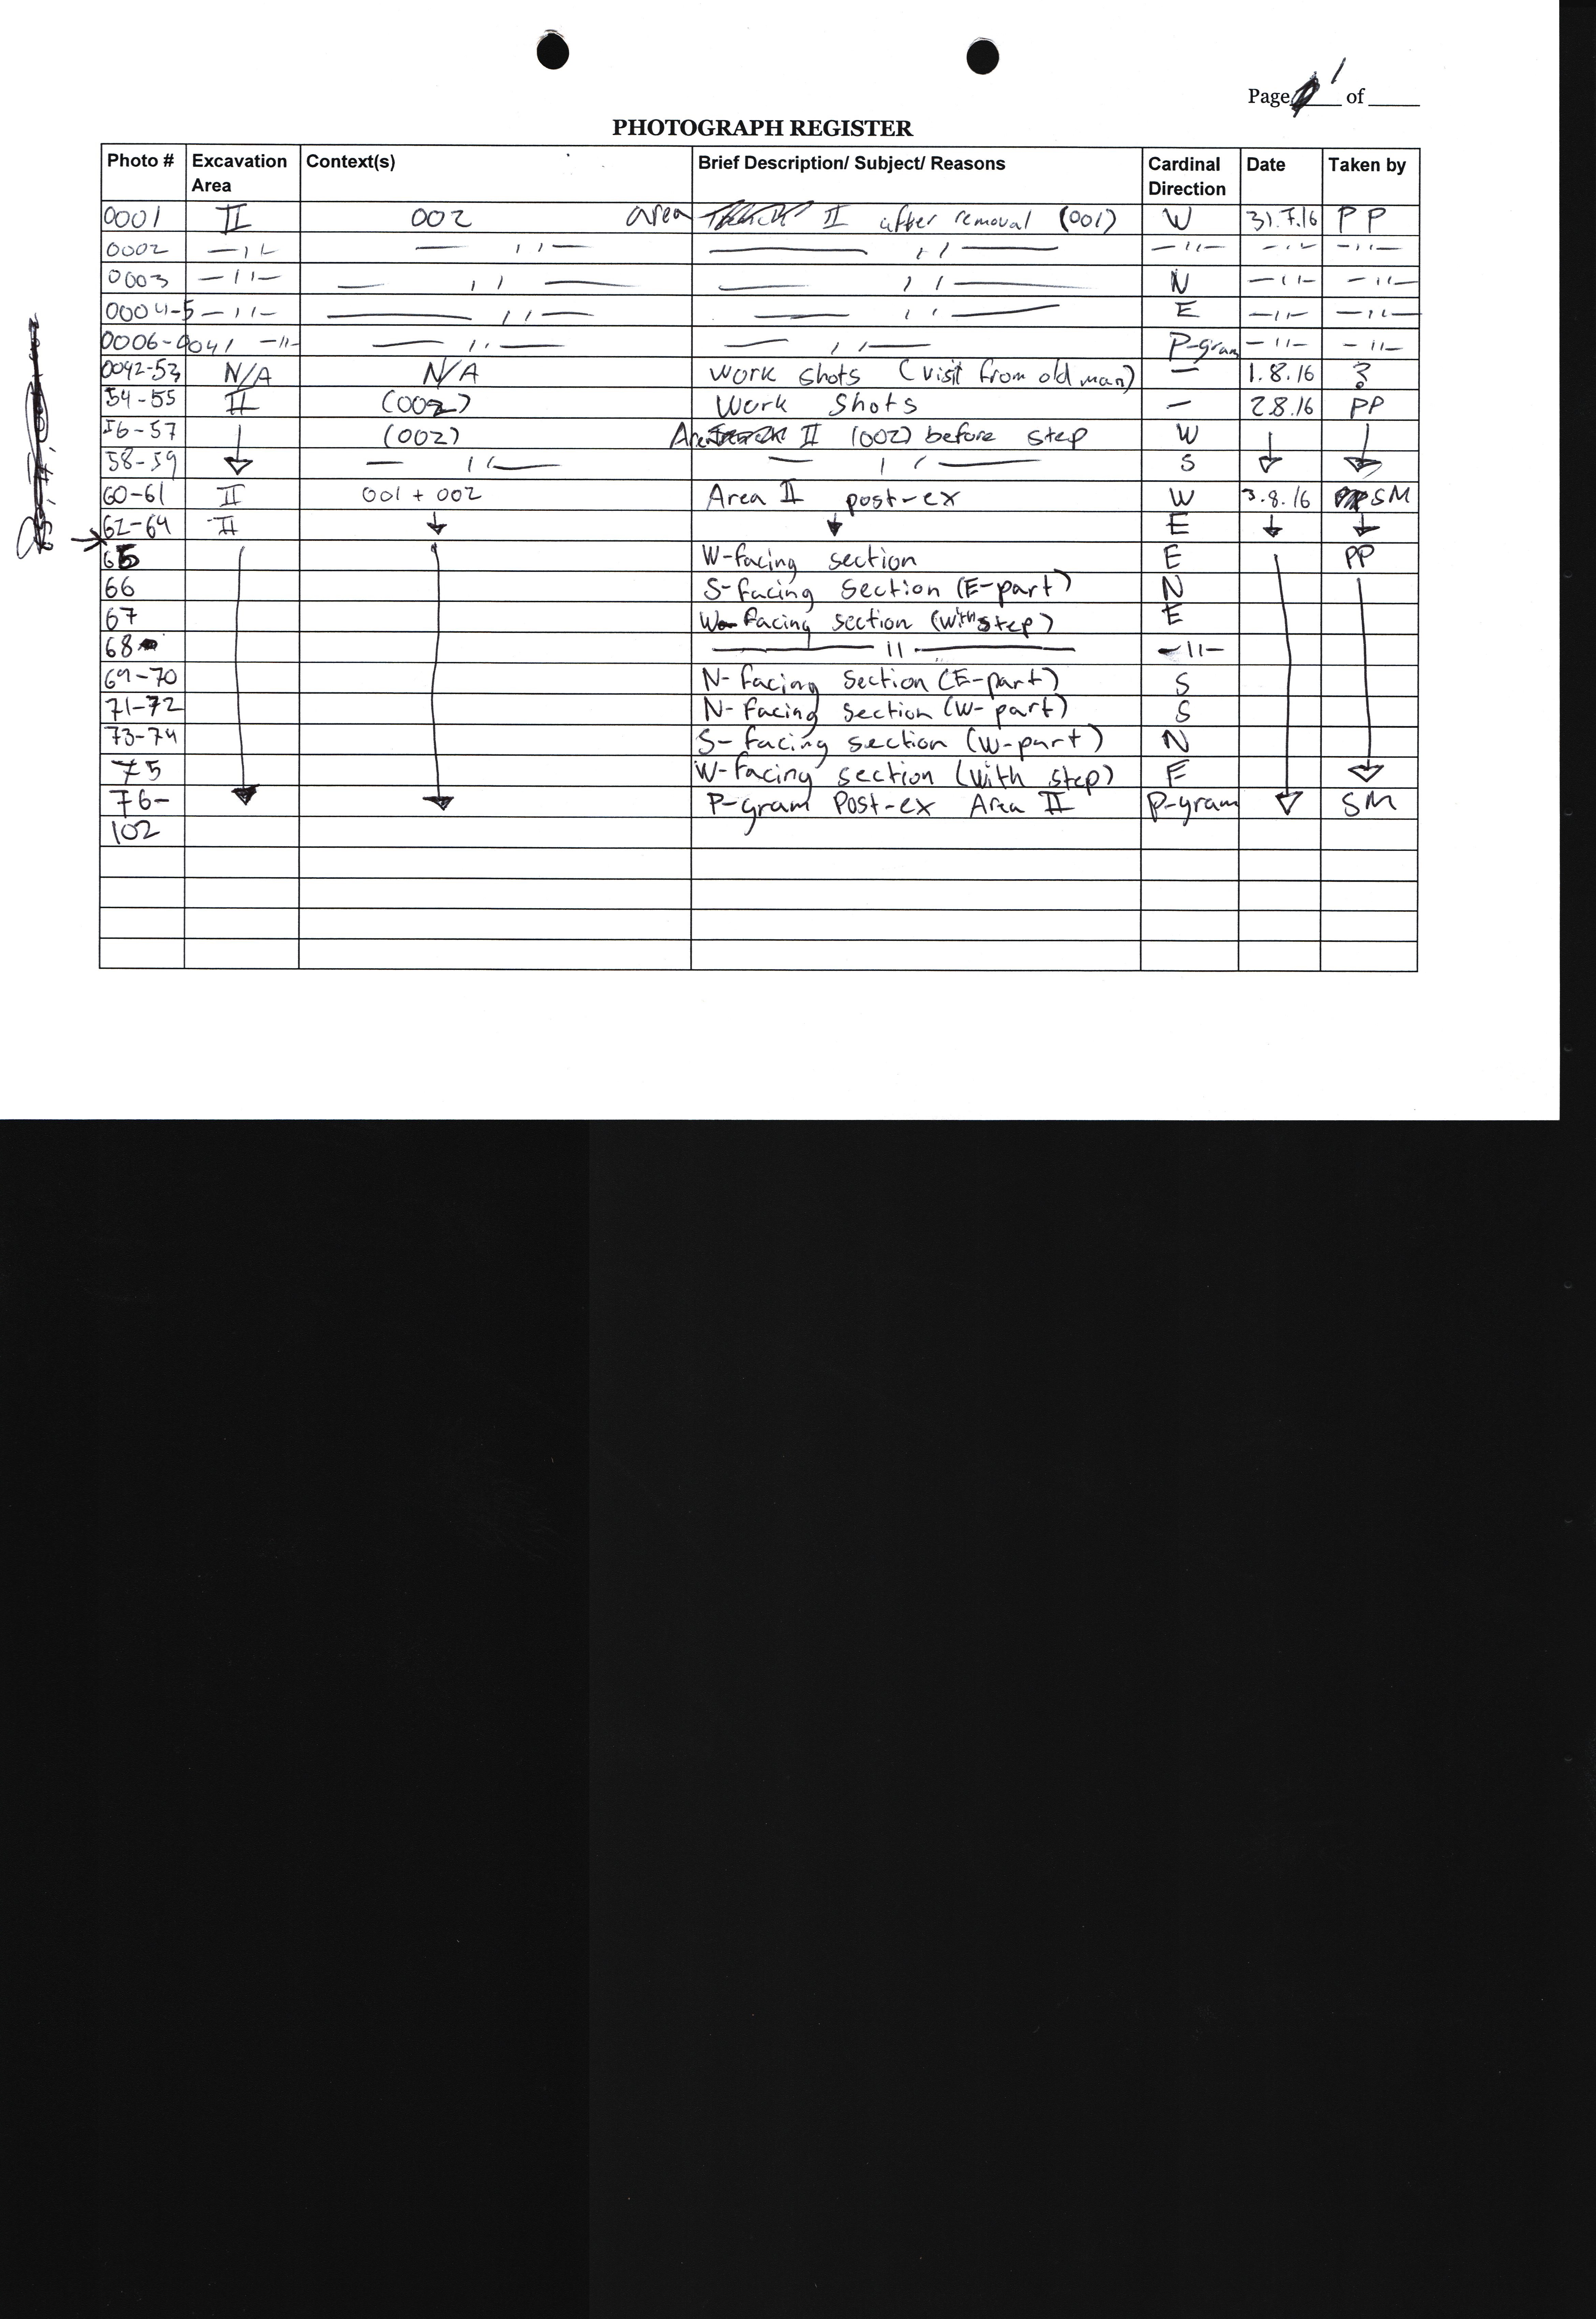 Page 1 of
PHOTOGRAPH REGISTER
Photo # Excavation Area Context(s) Brief Description/ Subject/ Reasons Cardinal Direction Date Taken by
0001 II 002 area II after removal (001) W 31.7.16 PP
0002 —11— —11— —11— —11— —11— —11—
0003 —11— —11— —11— N —11— —11—
0004-5 —11— —11— —11— E —11— —11—
0006-0041 —11— —11— —11— P-gram —11— —11—
0042-53 N/A N/A Work shots (visit from old man) — 1.8.16 ?
54-55 II (002) Work Shots — 2.8.16 PP
56-57 ↓ (002) Area II (002) before step W ↓ ↓
58-59 —11— —11— S
60-61 II 001 + 002 Area II post-ex W 3.8.16 SM
62-64 II ↓ ↓ E ↓ ↓
65 W-facing section E PP
66 S-facing Section (E-part) N
67 W-facing section (with step) E
68 —11— —11—
69-70 N-facing Section (E-part) S
71-72 N-facing section (W-part) S
73-74 S-facing section (W-part) N
75 W-facing section (with step) E
76- P-gram Post-ex Area II P-gram SM
102